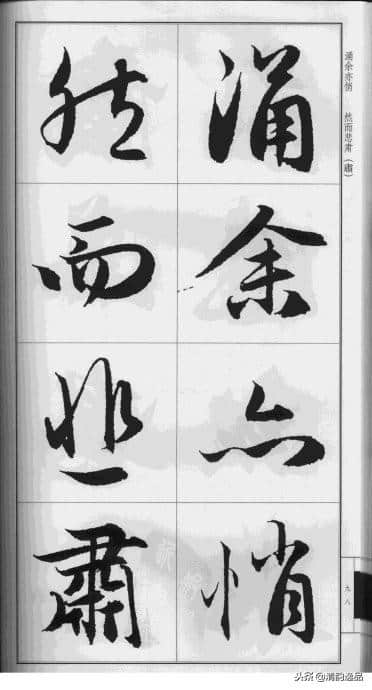 涌余亦悄　然而悲肃（肅）
涌余亦悄
然而悲肅
九八
头条@清韵逸品